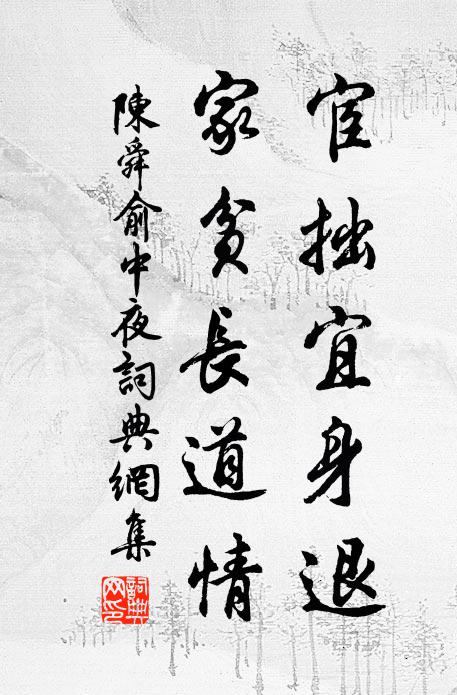 宦拙宜身退
家貧長道情
陳舜俞中夜詞典網集
詞典